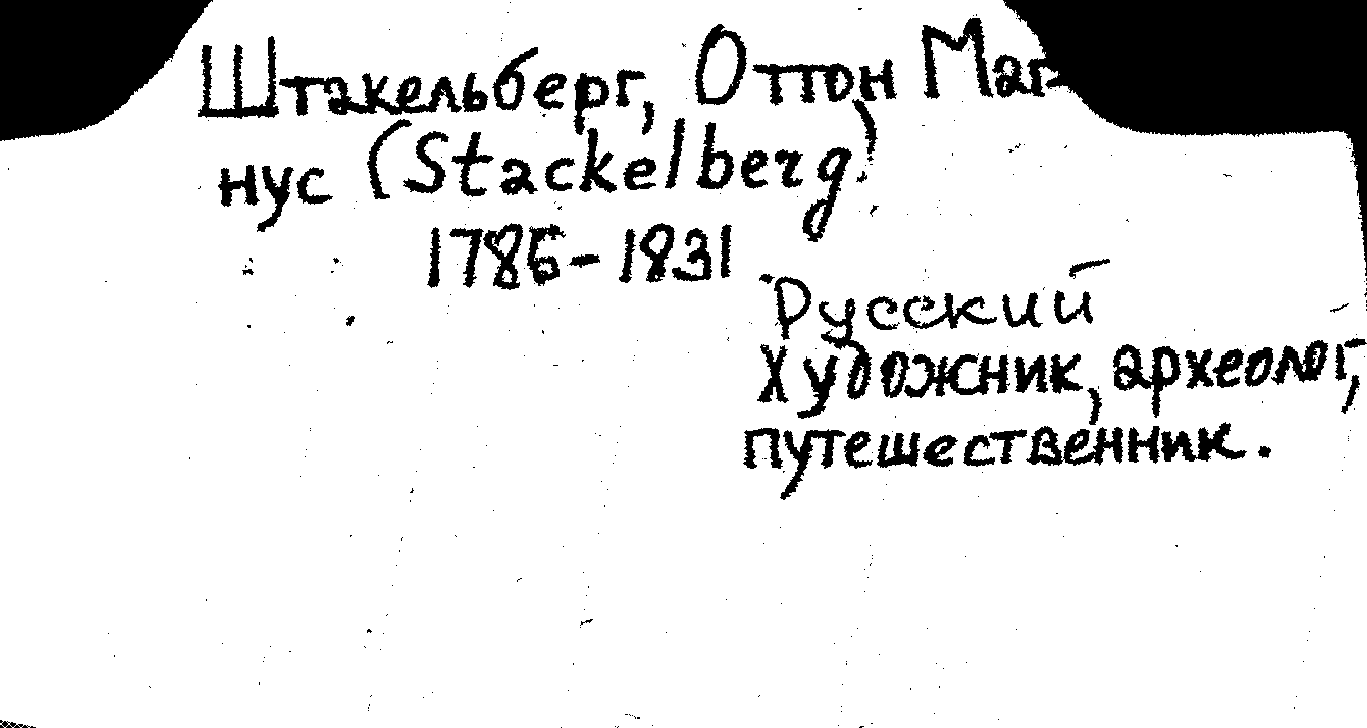 Штакельберг, Оттон Маг-
нус (Stackelberg)
1786-1831
Русский
художник, археолог,
путешественник.